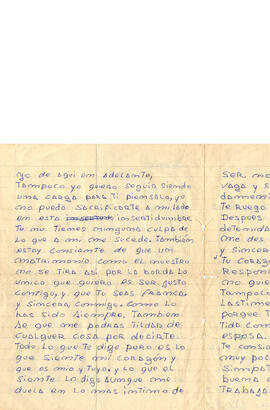 yo de aqui em adelante,
Tampoco yo quiero seguir siendo
una carga para Ti piemsalo, yo
no puedo sacrificarte a mi lado
em esta imsertidumbre
Tu mo Tiemes mimguma culpa de
lo que a mi me sucede. Tambiém
estoy consiante de que um
matrimomio como el muestro
mo se Tira asi por la borda lo
umico que quiero es ser justo
comtigo, y que Tu seas framca
y simcera commigo. como lo
has sido siempre. Tambiem
se que me podras Tildar de
cualquer cosa por decirte
Todo lo que Te digo pero es lo
que siemte mi corazóm y
que es mio y Tuyo, y lo que el
siemte lo digo aumque me
duela em lo mas imtimo de
ser, mo
vaga y s
Te ruego
Despues
detemida
ome des
y simcer
Tu corazo
Respom
mo quie
Tampoco
Lastime
porque T
Tido com
esposa.
Te comsi
muy poc
simpat
buema c
Trabaja